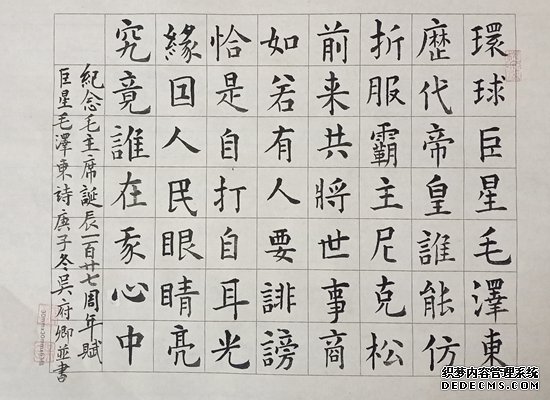 環球巨星毛澤東
歷代帝皇誰能仿
折服霸主尼克松
前来共將世事商
如若有人要誹謗
恰是自打自耳光
緣囙人民眼睛亮
究竟誰在心中
紀念毛主席誕辰一百廿七周年賦
巨星毛澤東詩庚子冬吳府卿並書
织梦内容管理系统
DEDECMS.COM